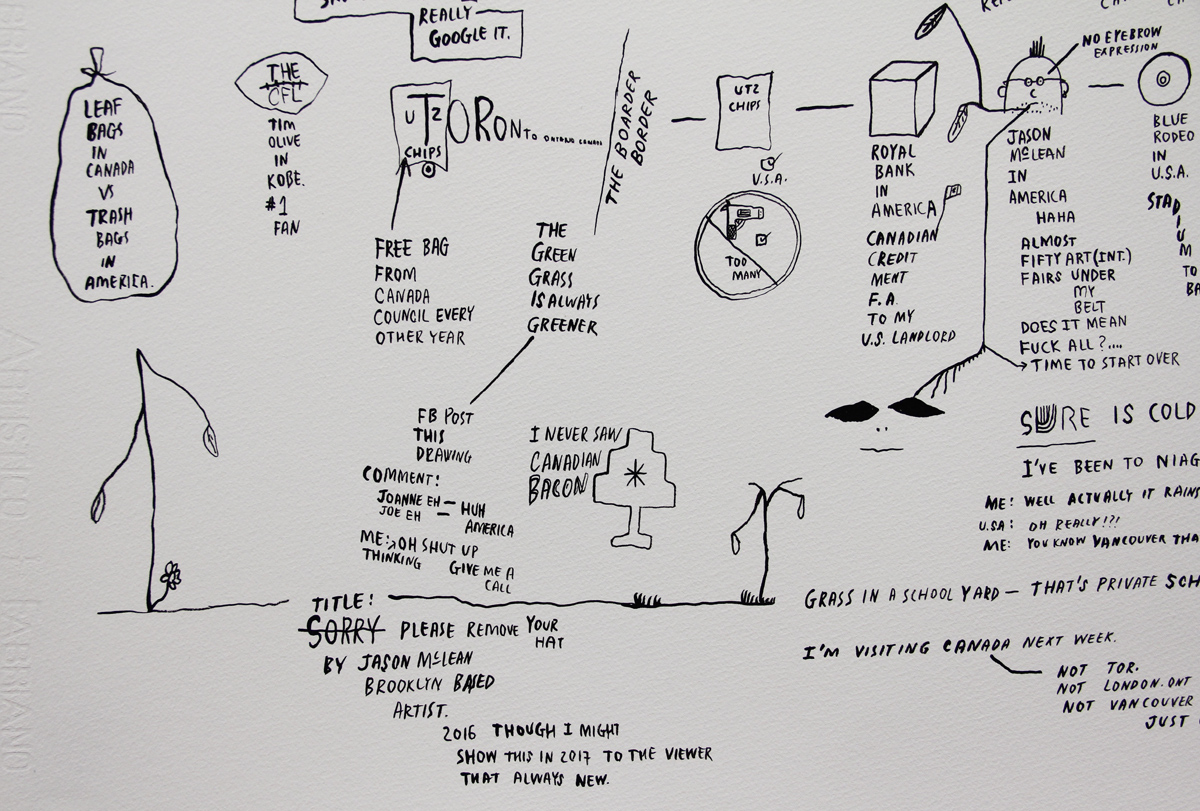 REALLY
GOOGLE IT.
NO EYEBROW
EXPRESSION
LEAF
BAGS
IN
CANADA
VS
TRASH
BAGS
IN
AMERICA.
THE
CFL
TIM
OLIVE
IN
KOBE.
#1
FAN
UTZ
CHIPS
TORONTO ONTARIO CANADA
FREE BAG
FROM
CANADA
COUNCIL EVERY
OTHER YEAR
THE BOARDER
BORDER
THE
GREEN
GRASS
IS ALWAYS
GREENER
UTZ
CHIPS
U.S.A.
TOO
MANY
ROYAL
BANK
IN
AMERICA
CANADIAN
CREDIT
MENT
F.A.
TO MY
U.S. LANDLORD
JASON
MCLEAN
IN
AMERICA
HAHA
ALMOST
FIFTY ART(INT.)
FAIRS UNDER
MY
BELT
DOES IT MEAN
FUCK ALL?....
TIME TO START OVER
BLUE
RODEO
IN
U.S.A.
STAD
I
U
M
TO
BA
FB POST
THIS
DRAWING
COMMENT:
JOANNE EH — HUH
JOE EH —
AMERICA
ME: OH SHUT UP
THINKING
GIVE ME A
CALL
I NEVER SAW
CANADIAN
BACON
SURE IS COLD
I'VE BEEN TO NIAG
ME: WELL ACTUALLY IT RAINS
U.S.A: OH REALLY!?!
ME: YOU KNOW VANCOUVER THA
GRASS IN A SCHOOL YARD — THAT'S PRIVATE SCH
I'M VISITING CANADA NEXT WEEK.
NOT TOR.
NOT LONDON.ONT
NOT VANCOUVER
JUST
TITLE:
SORRY PLEASE REMOVE YOUR
HAT
BY JASON MCLEAN
BROOKLYN BASED
ARTIST.
2016 THOUGH I MIGHT
SHOW THIS IN 2017 TO THE VIEWER
THAT ALWAYS NEW.